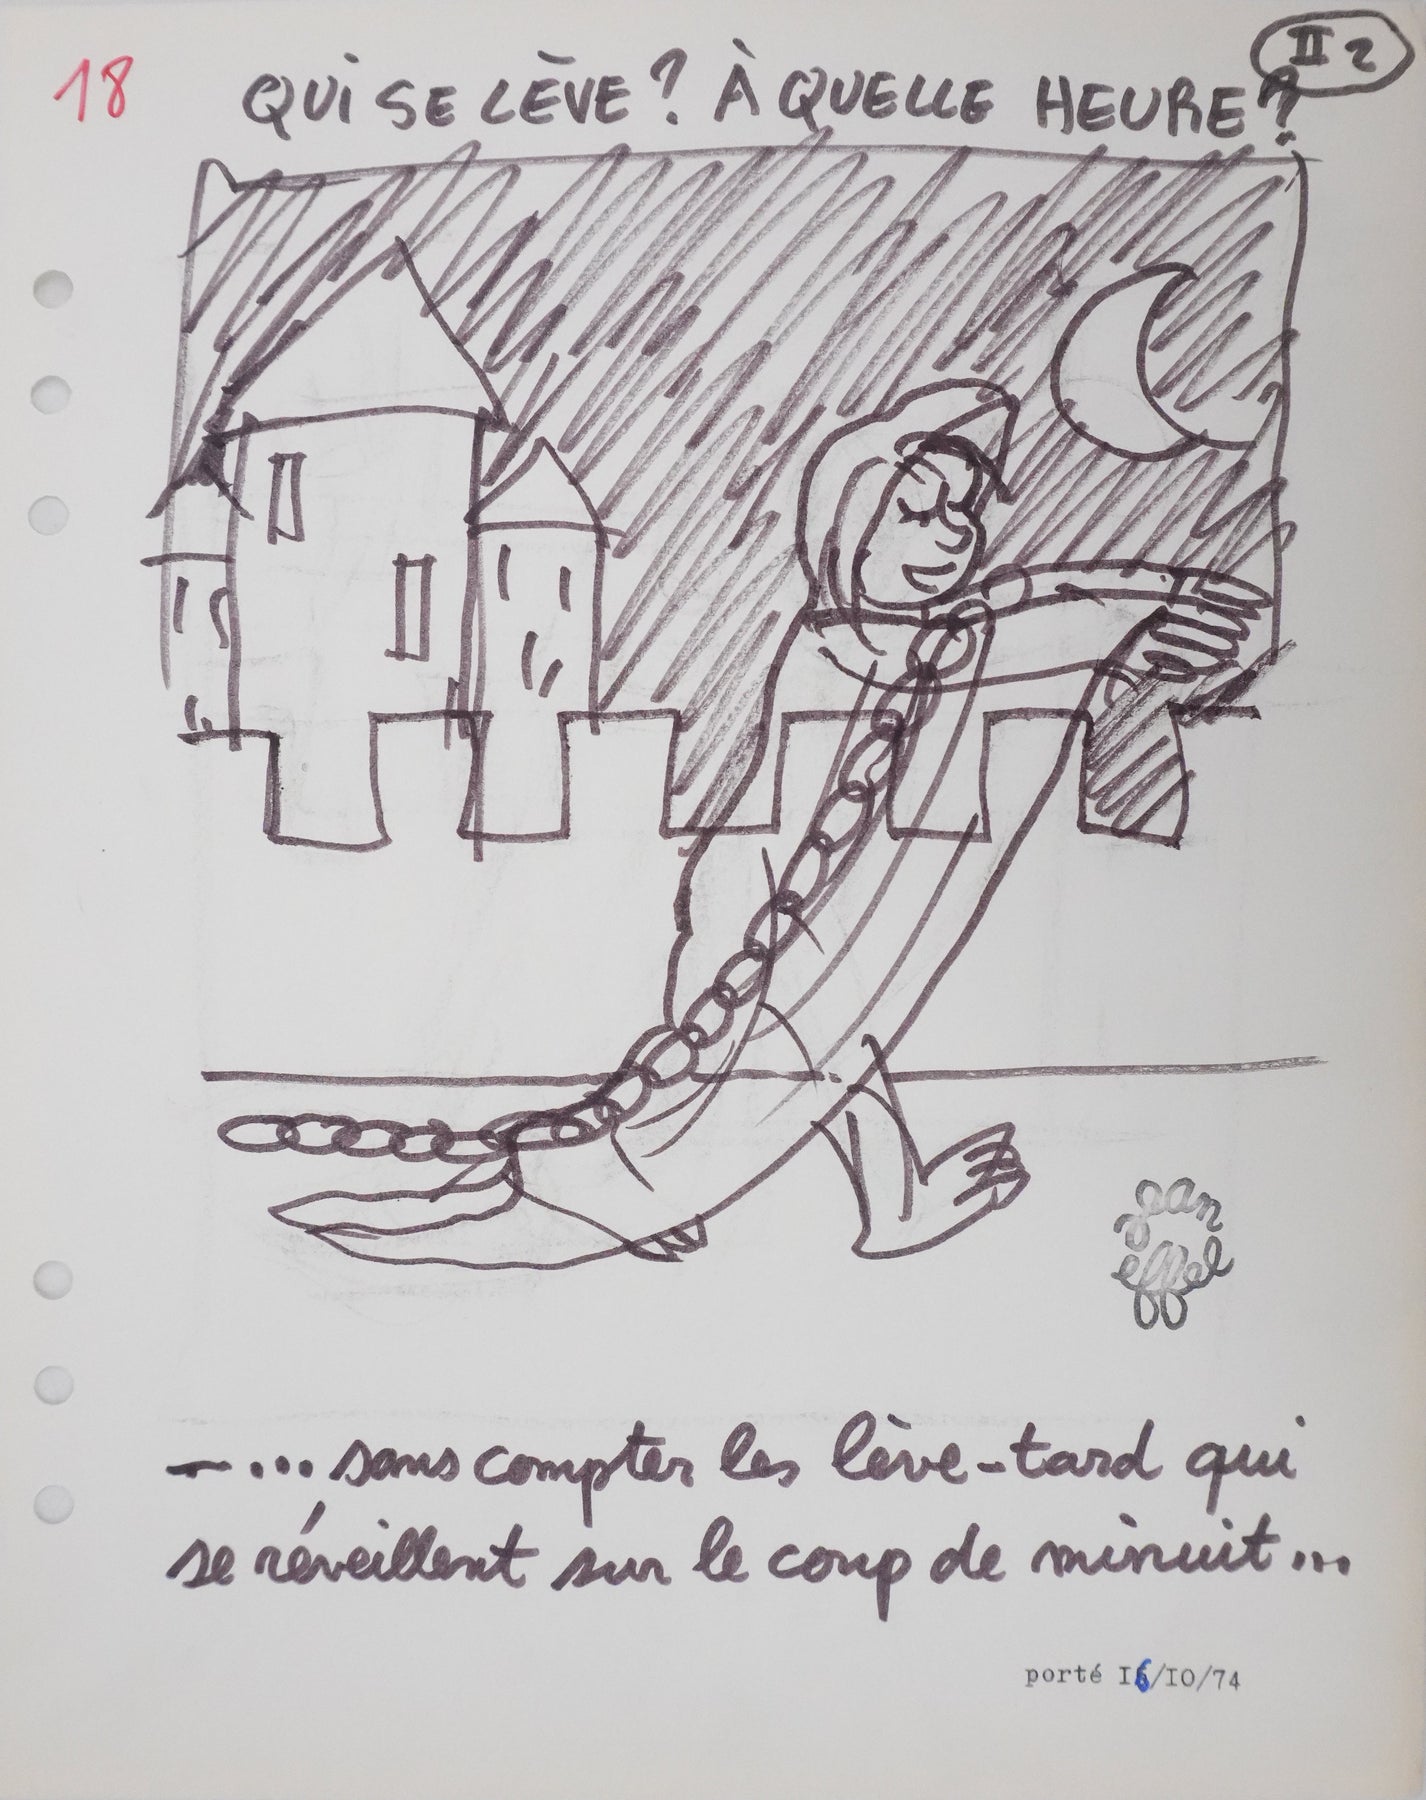 18
II 2
QUI SE LÈVE ? À QUELLE HEURE ?
jean
effel
— ... sans compter les lève-tard qui
se réveillent sur le coup de minuit ...
porté I6/IO/74